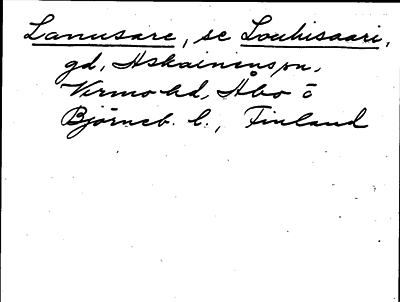 Lanusare, se Louhisaari,
gd, Askainens sn,
Virmo hd, Åbo o
Björneb. l., Finland